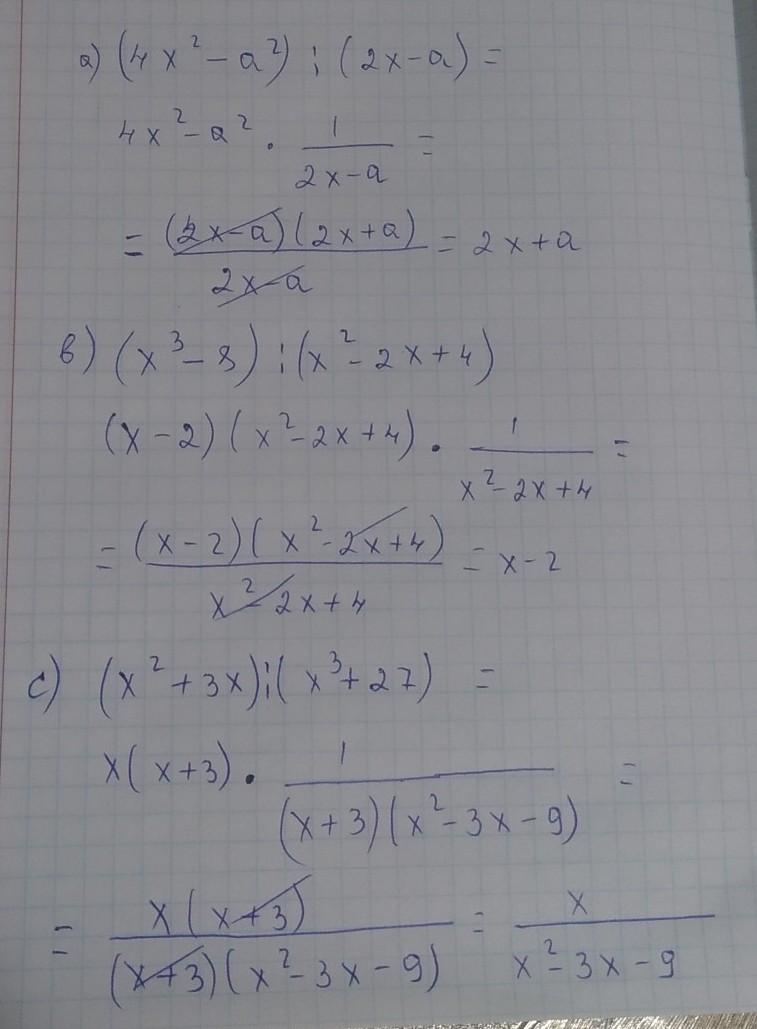 a) (4x² - a²) : (2x-a) =
4x² - a² · 1/(2x-a) =
= (2x-a)(2x+a)/(2x-a) = 2x+a
b) (x³ - 8) : (x² - 2x + 4)
(x-2)(x² - 2x + 4) · 1/(x² - 2x + 4) =
= (x-2)(x² - 2x + 4)/(x² - 2x + 4) = x-2
c) (x² + 3x) : (x³ + 27) =
x(x+3) · 1/((x+3)(x² - 3x - 9)) =
= x(x+3)/((x+3)(x² - 3x - 9)) = x/(x² - 3x - 9)